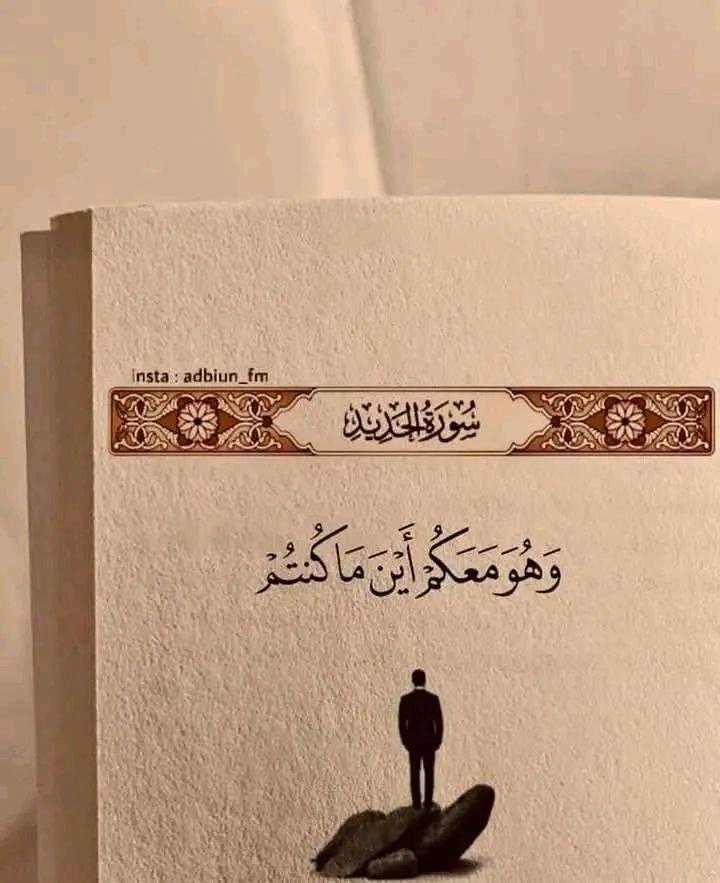 insta : adbiun_fm
سُورَةُ الحَدِيدِ
وَهُوَ مَعَكُمْ أَيْنَ مَا كُنتُمْ